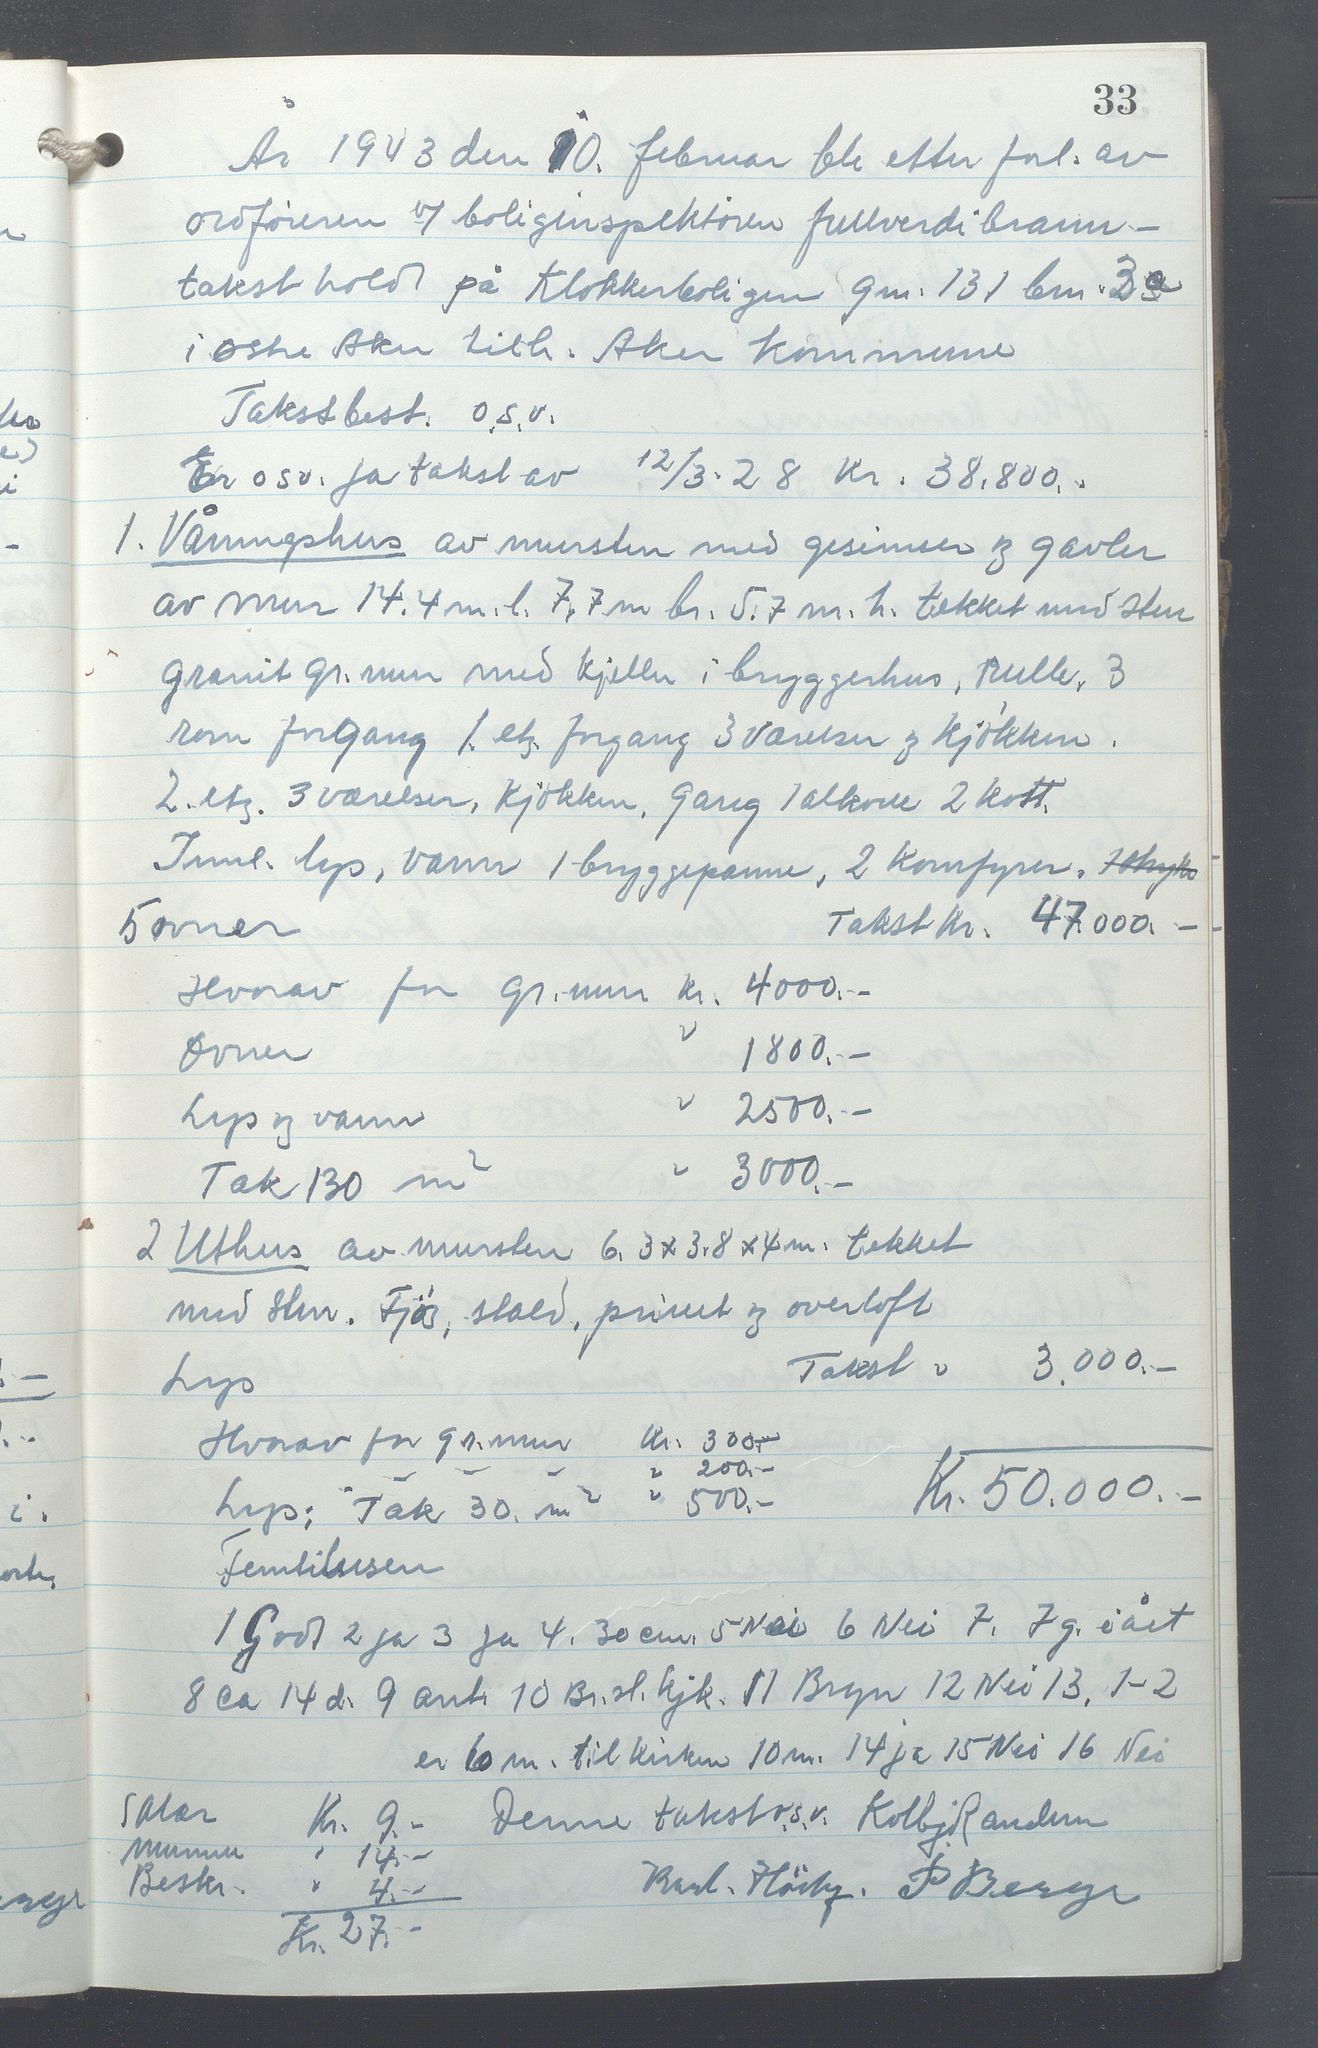 33
År 1943 den 10. februar ble etter forl. av
ordføreren v/ boliginspektøren fullverdibrann-
takst holdt på Klokkerboligen gn. 131 bn. 3a
i østre Aker tilh. Aker kommune
Takstbest. o.s.v.
Er o sv. ja takst av 12/3-28 Kr. 38.800.-
1. Våningshus av mursten med gesimser og gavler
av mur 14.4 m. l. 7,7 m br. 5.7 m. h. tekket med sten
granit gr.mur med kjeller i bryggerhus, Rulle, 3
rom forgang 1. etg. forgang 3 værelser og kjøkken.
2. etg. 3 værelser, kjøkken, gang 1 alkove 2 kott.
Innl. lys, vann 1 bryggepanne, 2 komfyrer.
5 ovner Takst Kr. 47.000.-
Hvorav for gr.mur kr. 4000.-
Ovner " 1800.-
Lys og vann " 2500.-
Tak 130 m² " 3000.-
2 Uthus av mursten 6.3 x 3.8 x 4 m. tekket
med sten. Fjøs, stald, privet og overloft
Lys Takst " 3.000.-
Hvorav for gr.mur Kr. 300.-
" 200.-
Lys; Tak 30. m² " 500.- Kr. 50.000.-
Femtitusen
1 Godt 2 ja 3 ja 4. 30 cm. 5 Nei 6 Nei 7. 7 g. i året
8 ca 14 d. 9 ant. 10 Br.sl. kjk. 11 Bryn 12 Nei 13. 1-2
er 6 m. til kirken 10 m. 14 ja 15 Nei 16 Nei
Salær Kr. 9.- Denne takst o.s.v. Kolbj. Randem
" 14.-
Beskr. " 4.- Karl. Höiby. P Berge
Kr. 27.-